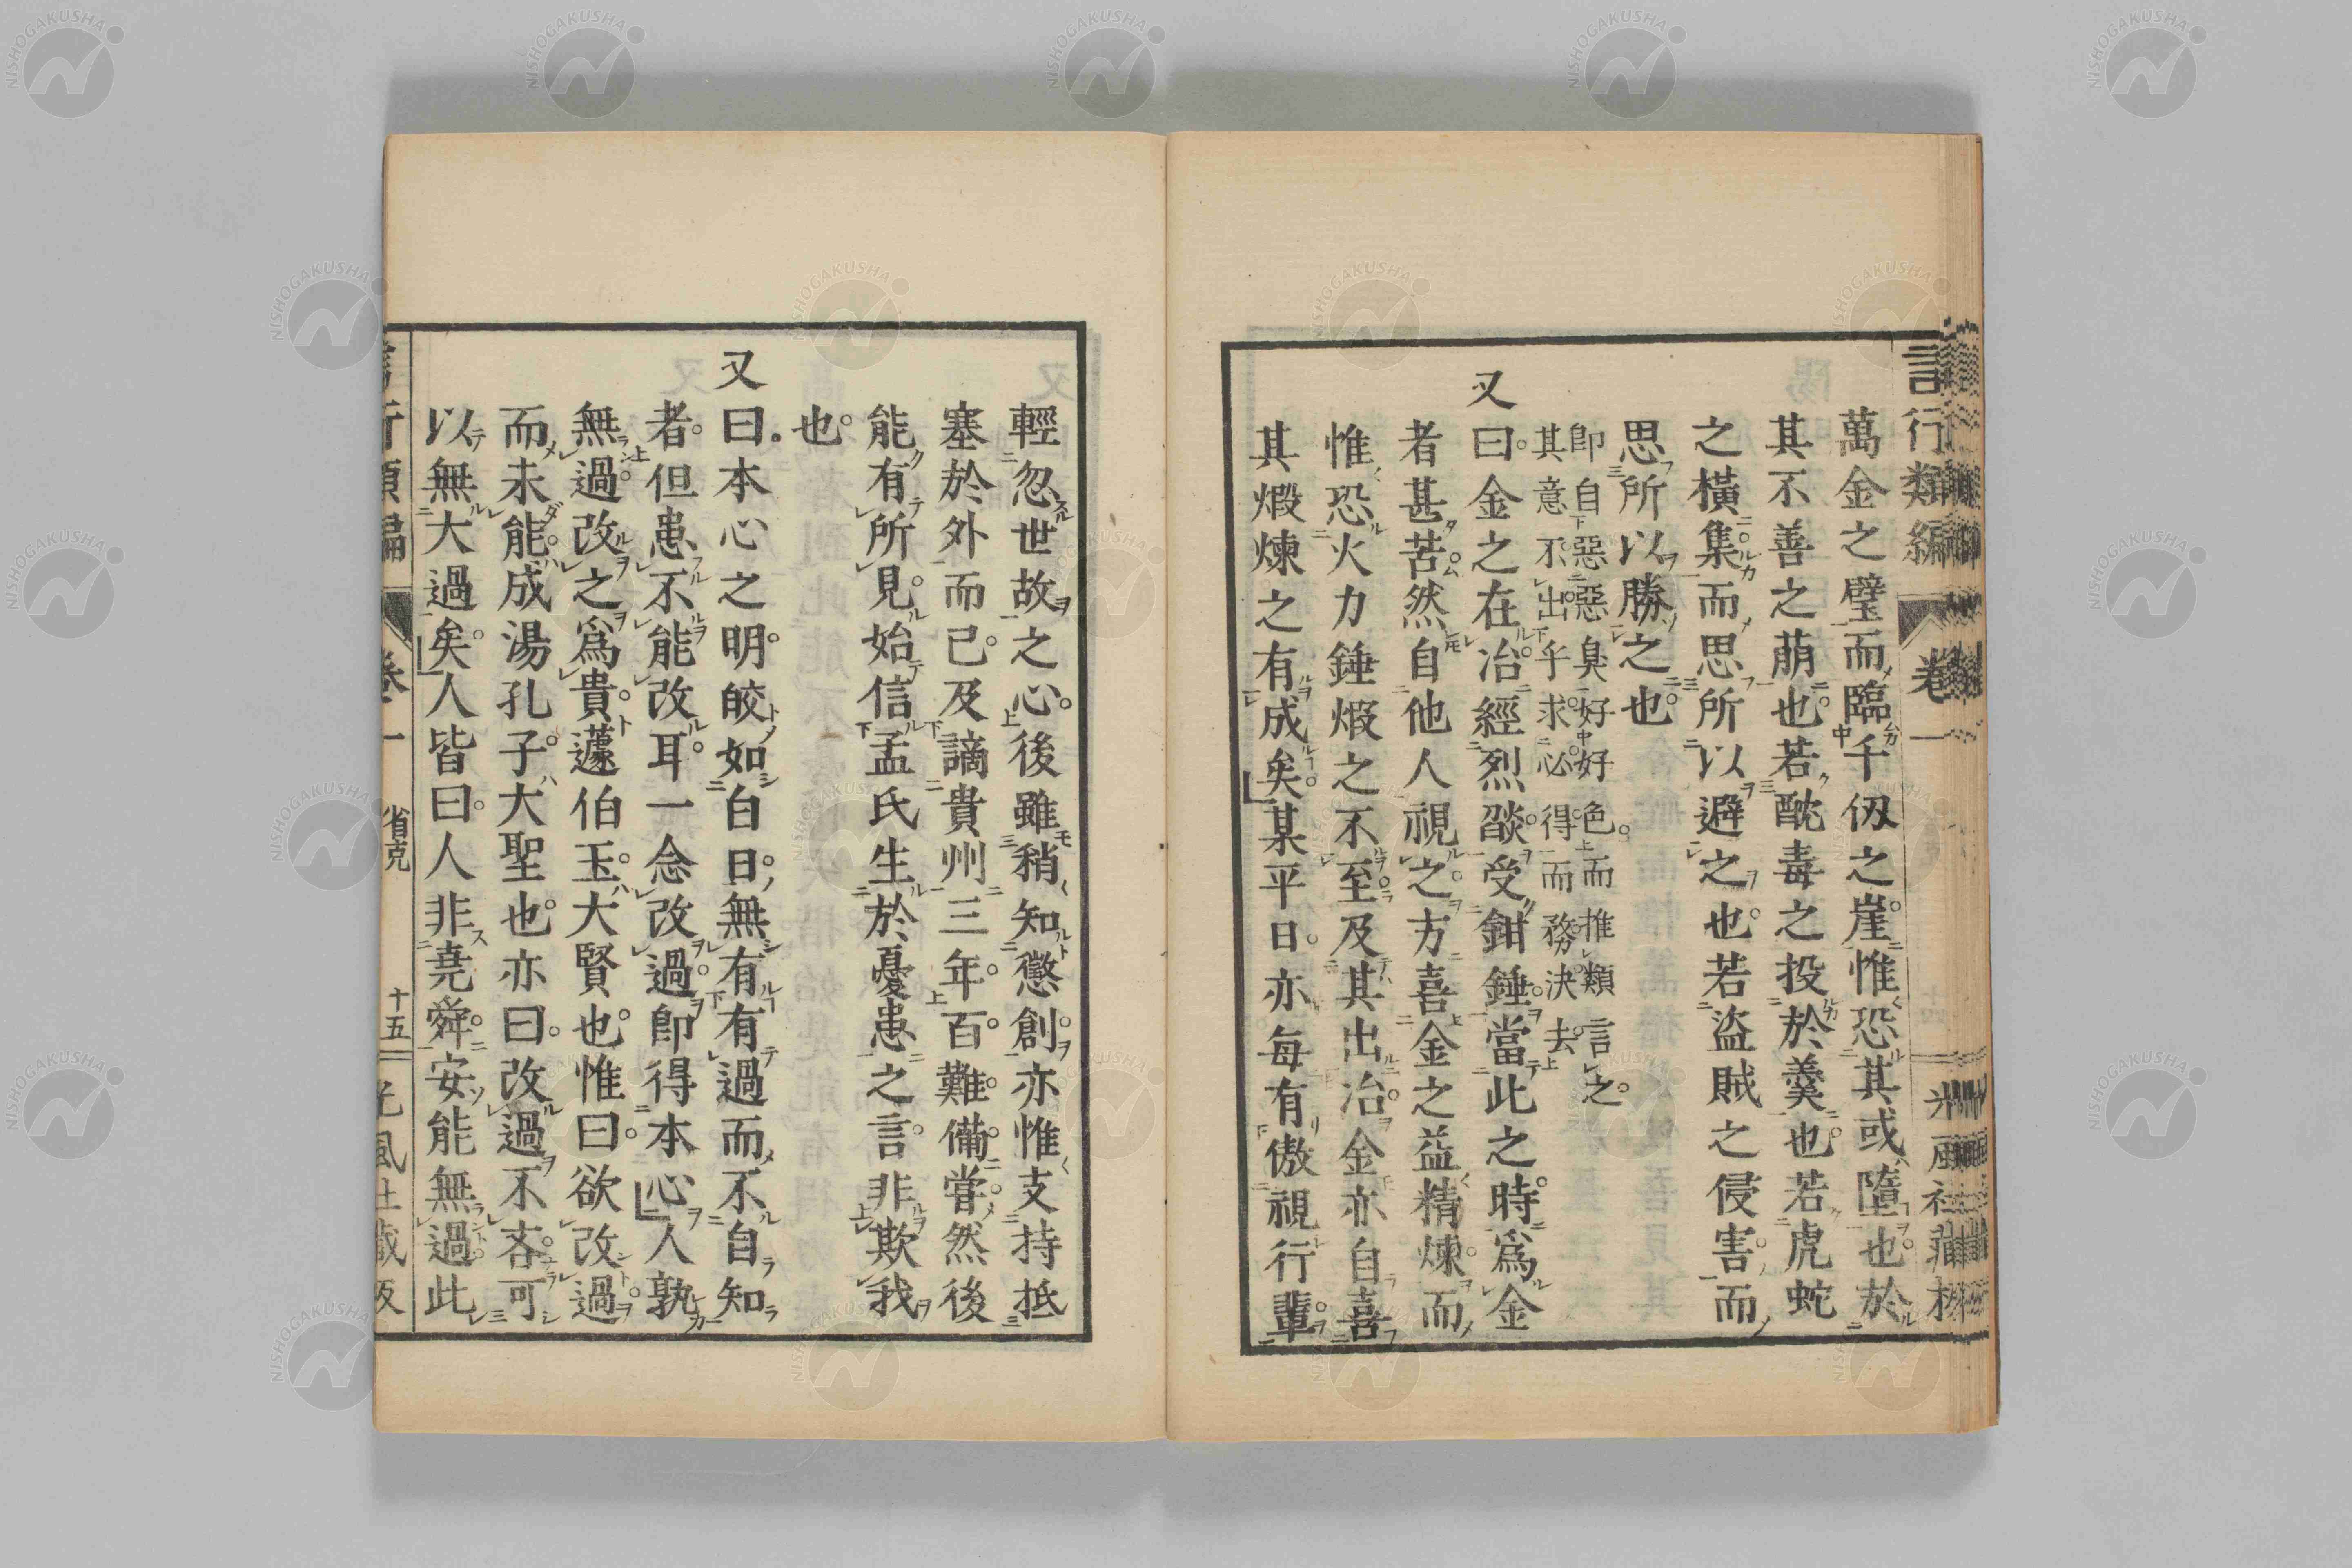 言行類編 卷一
萬金之璧而臨千仭之崖惟恐其或墮也於
其不善之萠也若酖毒之投於羹也若虎蛇
之橫集而思所以避之也若盜賊之侵害而
思所以勝之也
卽自惡惡臭好好色而推類言之
其意不出乎求必得而務決去
又曰金之在冶經烈燄受鉗錘當此之時爲金
者甚苦然自他人視之方喜金之益精煉而
惟恐火力錘煆之不至及其出冶金亦自喜
其煆煉之有成矣某平日亦每有傲視行輩
輕忽世故之心後雖稍知懲創亦惟支持抵
塞於外而已及謫貴州三年百難備嘗然後
能有所見始信孟氏生於憂患之言非欺我
也
又曰本心之明皎如白日無有有過而不自知
者但患不能改耳一念改過卽得本心人孰
無過改之爲貴蘧伯玉大賢也惟曰欲改過
而未能成湯孔子大聖也亦曰改過不吝可
以無大過矣人皆曰人非堯舜安能無過此
卷一 省克 十五
NISHOGAKUSHA